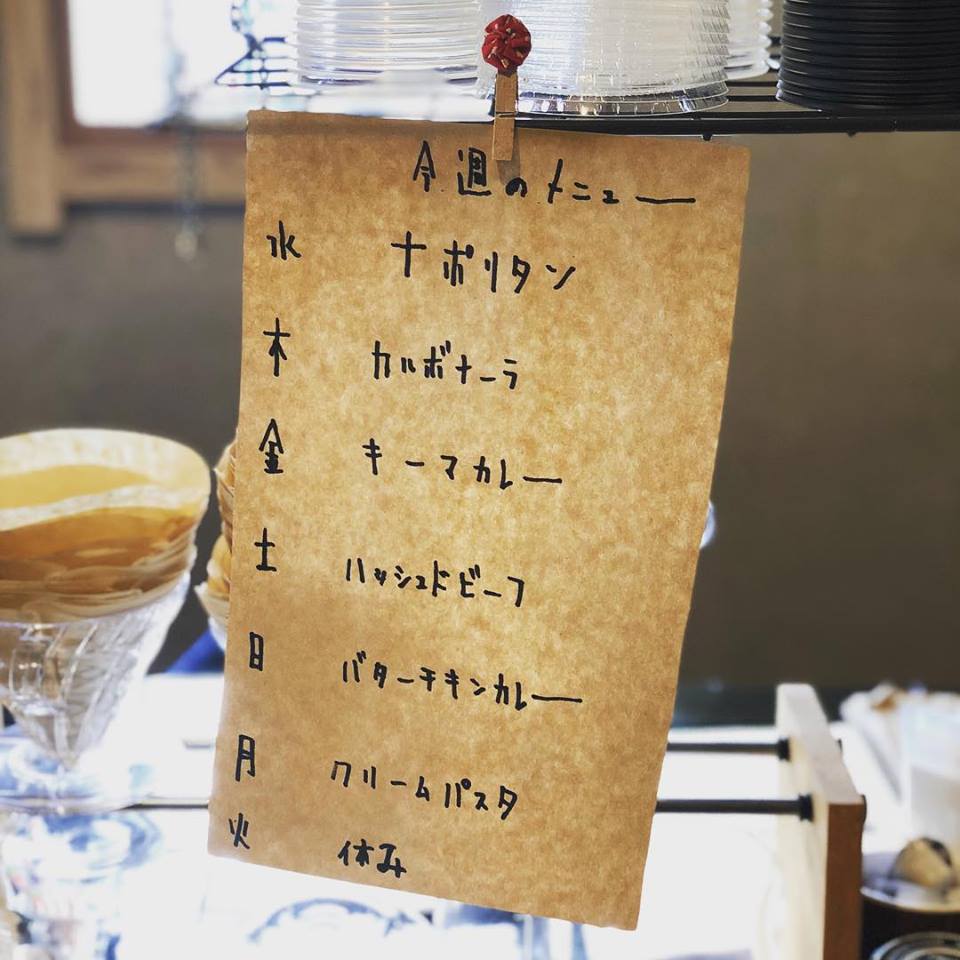 今週のメニュー
水 ナポリタン
木 カルボナーラ
金 キーマカレー
土 ハッシュドビーフ
日 バターチキンカレー
月 クリームパスタ
火 休み